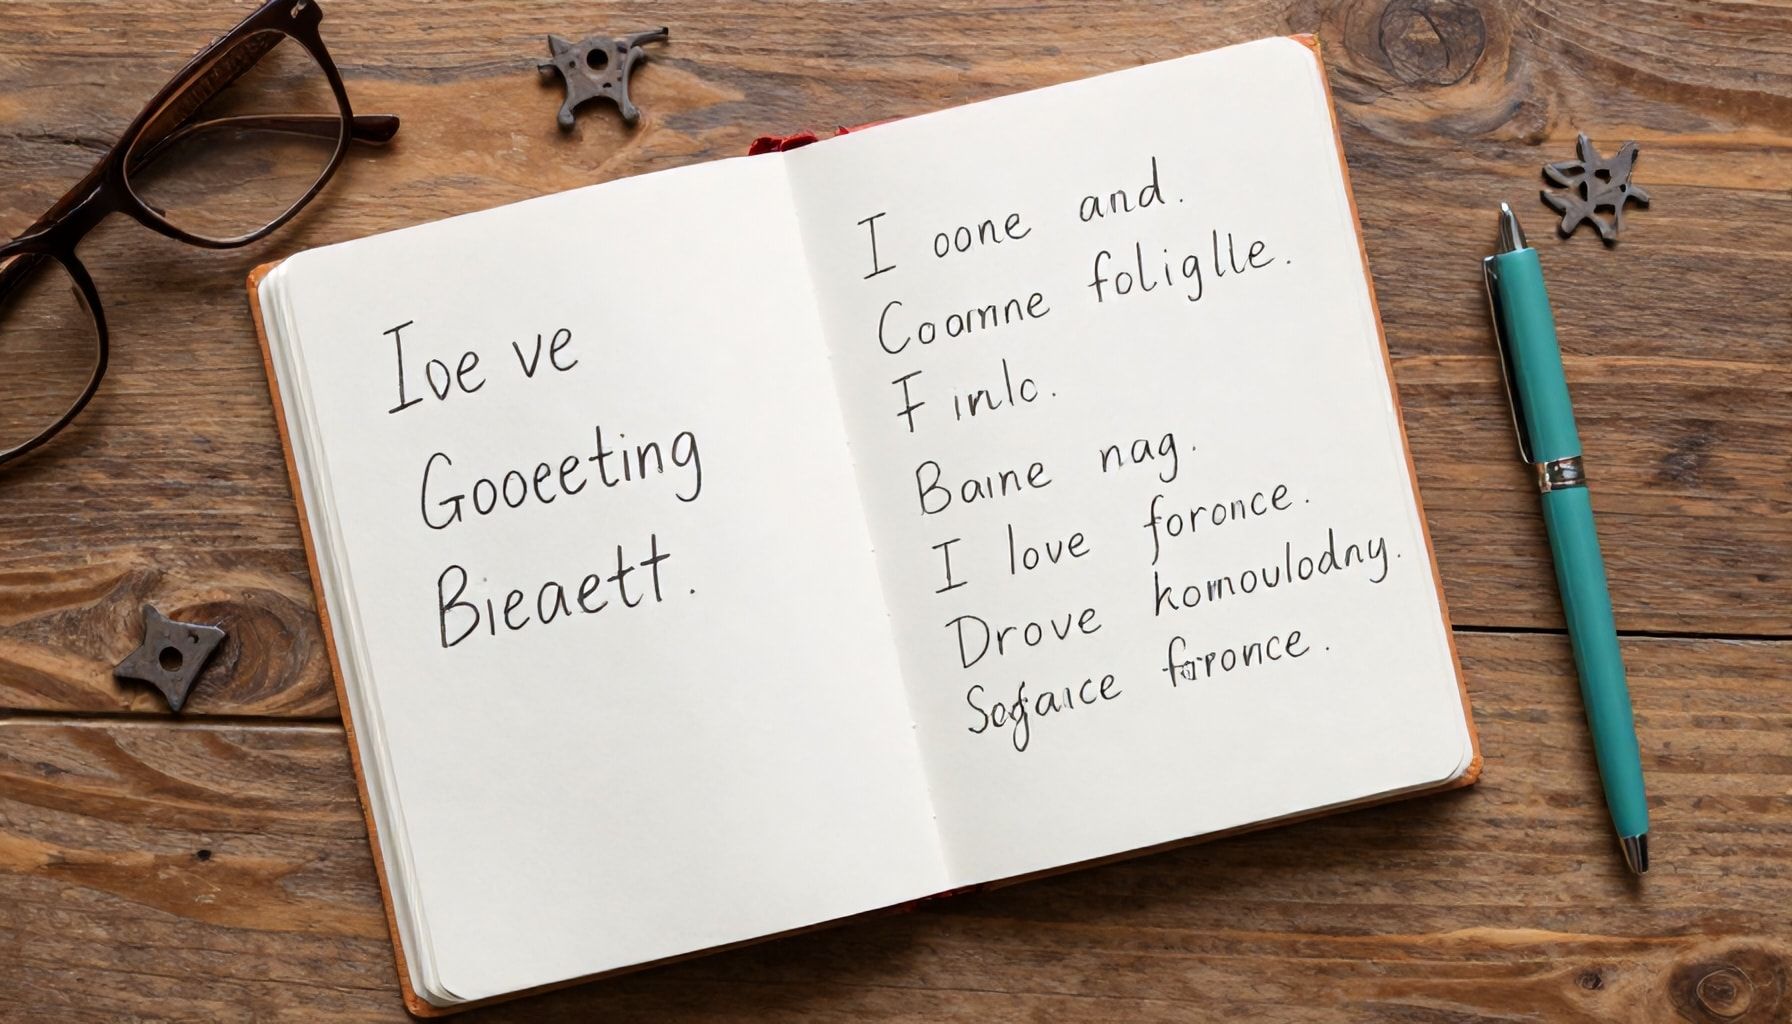 Ioe ve
Gooeeting
Bieaett.
I oone and.
Coomne foliglle.
F inlc.
Baine nag.
I love foronce.
Drove komoulodny.
foronce.